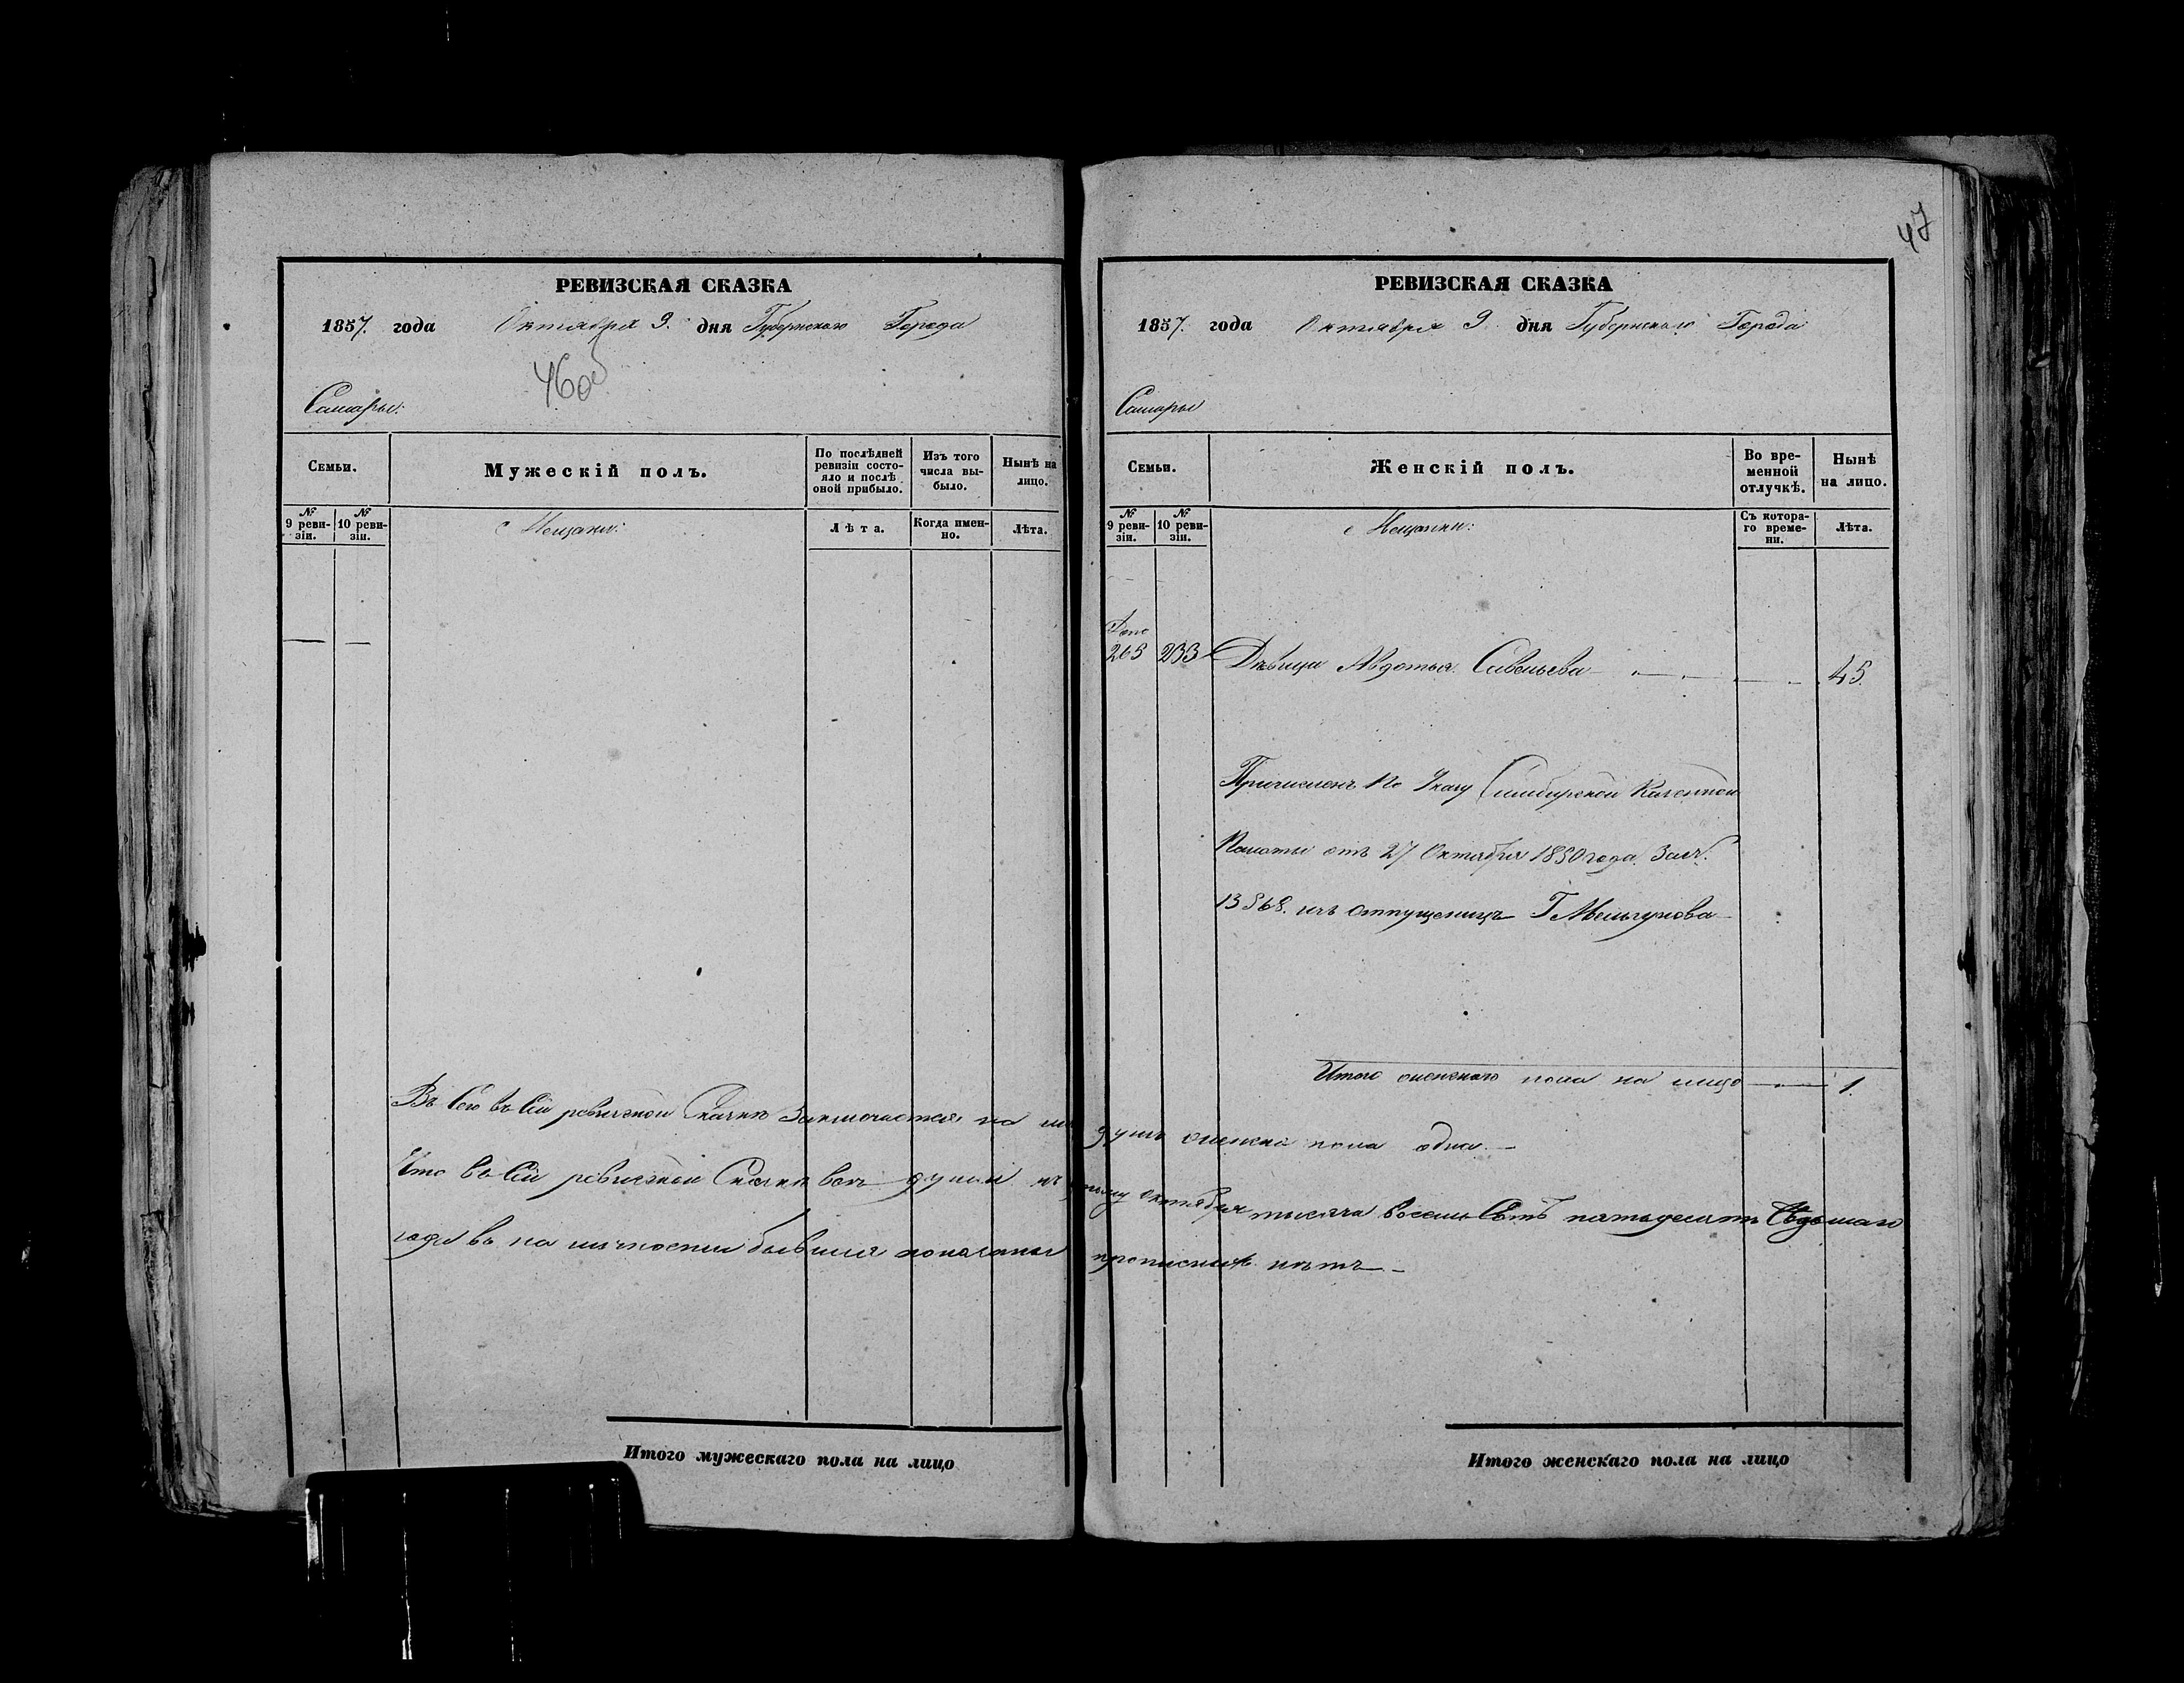 РЕВИЗСКАЯ СКАЗКА
1857. года Октября 9. дня Губернскаго Города
46об
Самары:
Семьи.
Мужескій полъ.
По послѣдней ревизіи состояло и послѣ оной прибыло.
Изъ того числа выбыло.
Нынѣ на лицо.
№ 9 ревизіи.
№ 10 ревизіи.
Мещани:
Лѣта.
Когда именно.
Лѣта.
Въ Сей ревизской Сказке Заключается на
Что въ Сей ревизской Сказке все души къ
года въ на личности бывшия показаны
Итого мужескаго пола на лицо
47
РЕВИЗСКАЯ СКАЗКА
1857. года Октября 9 дня Губернскаго Города
Самары
Семьи.
Женскій полъ.
Во временной отлучкѣ.
Нынѣ на лицо.
№ 9 ревизіи.
№ 10 ревизіи.
Мещанки:
Съ котораго времени.
Лѣта.
Допо
265 233 Дѣвица Авдотья Савельева 45.
Причислена По Указу Симбирской Казенной
Палаты отъ 27 Октября 1850 года За №
13568. изъ отпущеницъ Г Мельгунова
Итого женскаго пола на лицо 1.
душъ женска пола одна.
Октября тысяча восемь Сотъ пятьдесятъ Седьмаго
прописныхъ нѣтъ
Итого женскаго пола на лицо